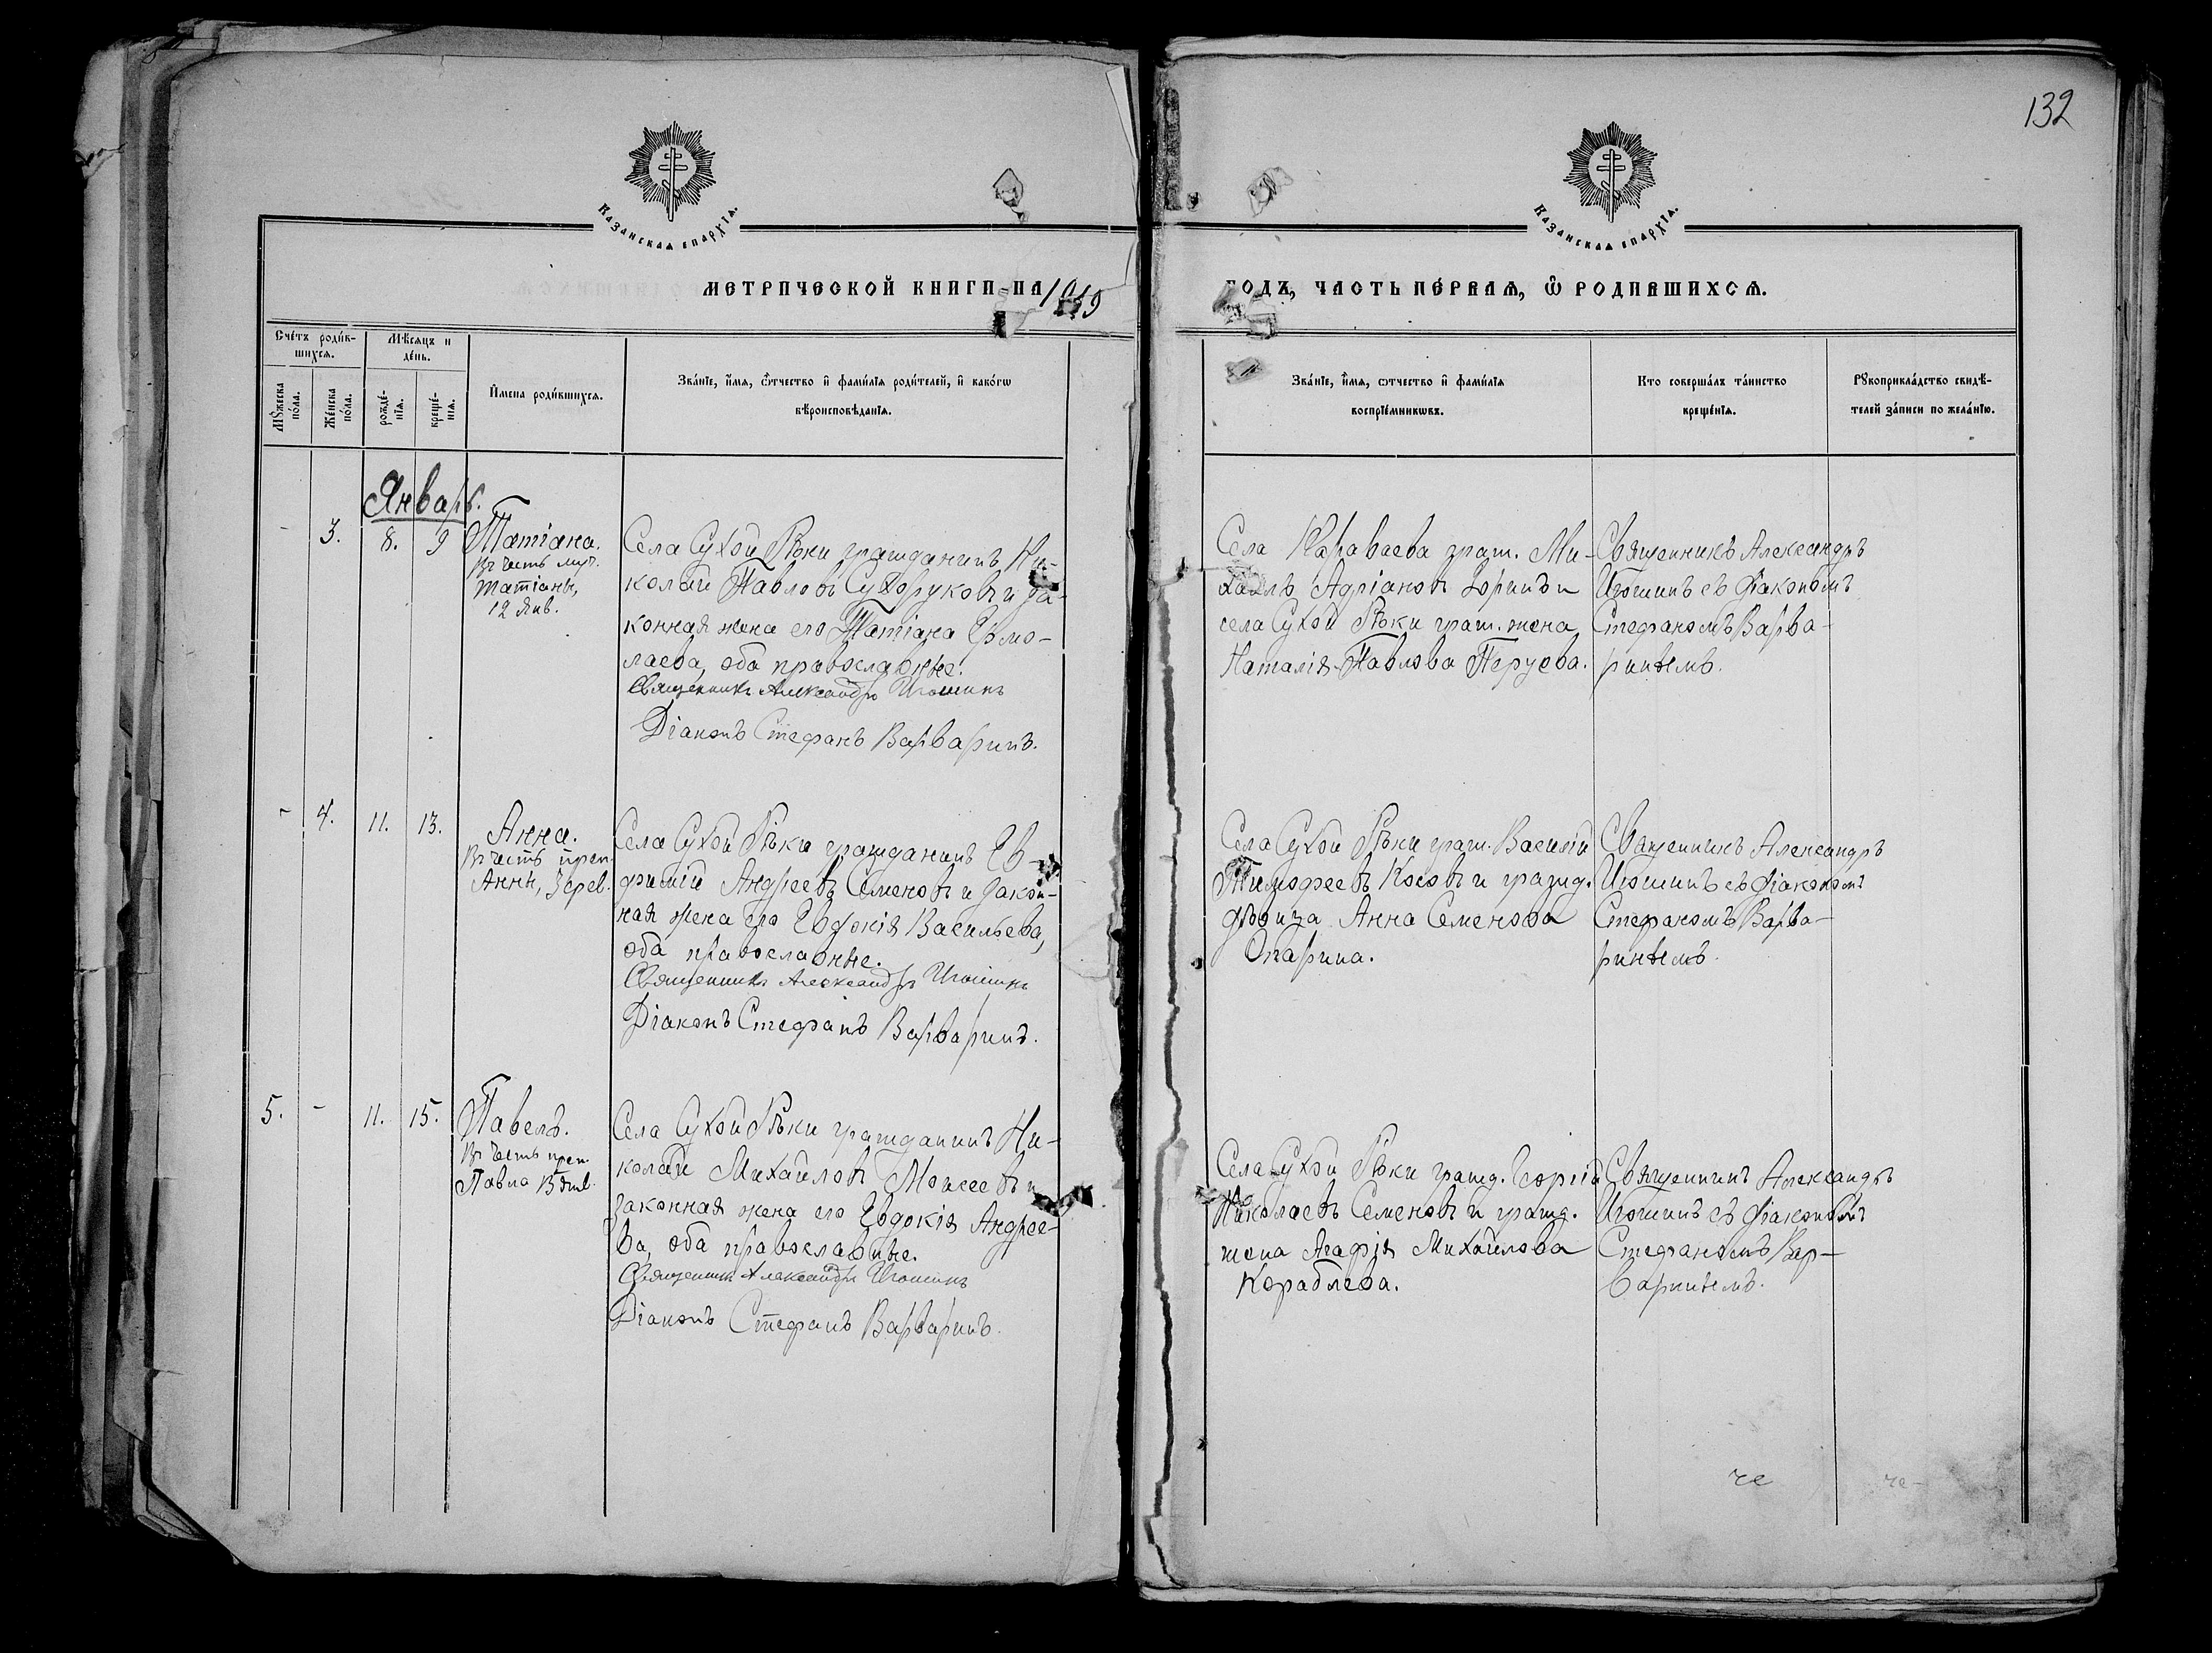 132
Казанская епархїѧ.
Казанская епархїѧ.
МЕТРИЧЕСКОЙ КНИГИ НА 1919
ГОДЪ, ЧАСТЬ ПЕ́РВАѦ, Ѽ РОДИВШИХСѦ.
Сче́тъ роди́в-
шихсѧ.
Мѣ́сѧцъ и
де́нь.
Мꙋ́жеска
по́ла.
Же́нска
по́ла.
рожде́-
нїѧ.
креще́-
нїѧ.
И҆мена роди́вшихсѧ.
Зва́нїе, и҆́мѧ, ѻ҆́тчество и҆ фами́лїѧ роди́телей, и҆ како́гѡ
вѣроисповѣ́данїѧ.
Зва́нїе, и҆́мѧ, ѻ҆тчество и҆ фами́лїѧ
воспрїе́мникѡвъ.
Кто соверша́лъ та́инство
креще́нїѧ.
Рꙋкоприкла́дство свидѣ́-
телей за́писи по жела́нїю.
Январь.
- 3. 8. 9
Татіана.
Въ честь муч.
Татіаны,
12 Янв.
Села Сухой Рѣки гражданинъ Ни-
колай Павловъ Сухоруковъ и за-
конная жена его Татіана Ермо-
лаева, оба православные.
Священникъ Александръ Игошинъ
Діаконъ Стефанъ Варваринъ.
Села Караваева граж. Ми-
хаилъ Адріановъ Зоринъ и
села Сухой Рѣки граж. жена
Наталія Павлова Перуева.
Священникъ Александръ
Игошинъ съ діакономъ
Стефаномъ Варва-
ринымъ.
- 4. 11. 13.
Анна.
Въ честь преп.
Анны, 3 фев.
Села Сухой Рѣки гражданинъ Ев-
фимій Андреевъ Семеновъ и закон-
ная жена его Евдокія Васильева,
оба православные.
Священникъ Александръ Игошинъ
Діаконъ Стефанъ Варваринъ.
Села Сухой Рѣки граж. Василій
Тимофеевъ Косовъ и гражд.
дѣвица Анна Семенова
Опарина.
Священникъ Александръ
Игошинъ съ діакономъ
Стефаномъ Варва-
ринымъ.
5. - 11. 15.
Павелъ.
Въ честь преп.
Павла 15 янв.
Села Сухой Рѣки гражданинъ Ни-
колай Михайловъ Моисеевъ и
законная жена его Евдокія Андрее-
ва, оба православные.
Священникъ Александръ Игошинъ
Діаконъ Стефанъ Варваринъ.
Села Сухой Рѣки гражд. Георгій
Николаевъ Семеновъ и гражд.
жена Агафія Михайлова
Кораблева.
Священникъ Александръ
Игошинъ съ діакономъ
Стефаномъ Вар-
варинымъ.